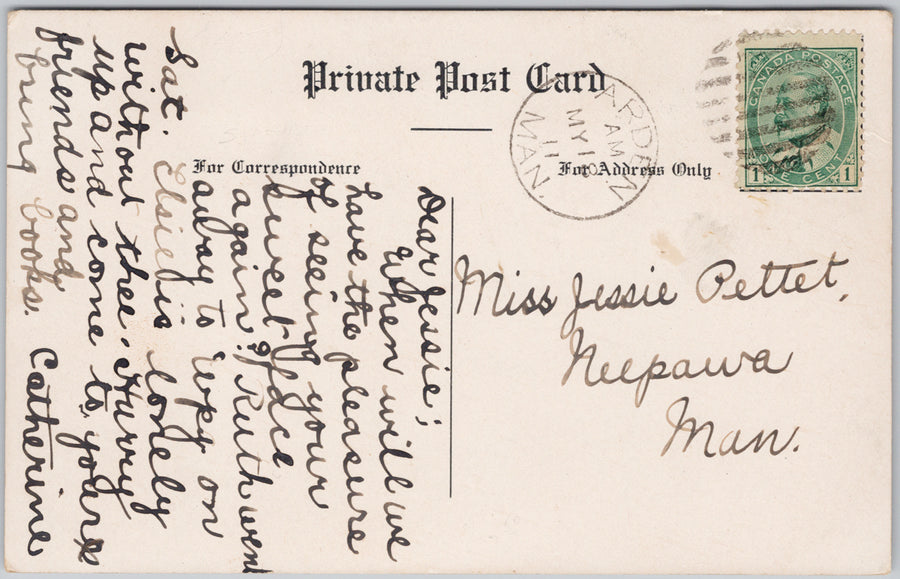 Private Post Card
For Correspondence
For Address Only
ARDEN
AM
MY 1
11
MAN.
CANADA POSTAGE
1 ONE CENT 1
Miss Jessie Pettet,
Neepawa
Man.
Dear Jessie;
When will we
have the pleasure
of seeing your
sweet face
again? Ruth went
away to Wpg on
Sat. Elsie is lonely
without thee. Hurry
up and come to yours
friends and
bring books.
Catherine